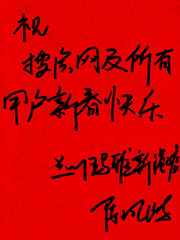 祝
搜房网及所有
用户新春快乐
兰州瑞雅新港湾